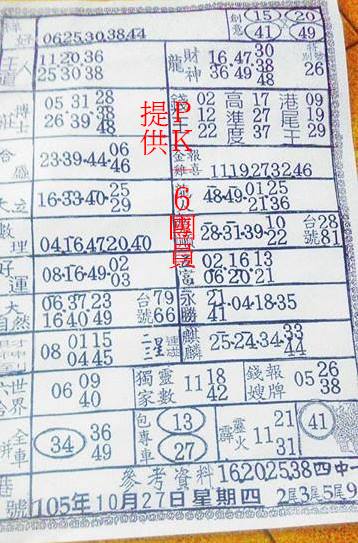 好 06.25.30.38.44
創意 15 20
41 49
王道人 11 20 36
25 30 38
龍財神 16.47.30
36.49.48
26
莊博士 05 31 28
38
26 39 48
錢王 02
12
22
高進度 17
27
37
港尾王 09
19
29
合盛 23-39-44-06
46
金雞報喜 11.19.27.32.46
大立 16-33-40-25
29
48-49-01 25
31
數理 04.16.47.20.40
28-31-39-10
22
台28
號81
好運 08-16-49-02
03
02 16 13
06 20 21
大自然 06.37.23
16.40.49
台79
號66
永勝 21-04-18-35
41
08 01 15
04 45
二星
麒麟 25-24-34-33
44
六合世界 06 09
40
獨家 靈數 11 18
42
錢嫂報牌 05 26
38
全車 34 36
49
包專車 13
27
霹靂火 21
11 31
41
參考資料 16.20.25.38 四中一
號 105年10月27日星期四 2尾3尾5尾9
提供
PK 6團員